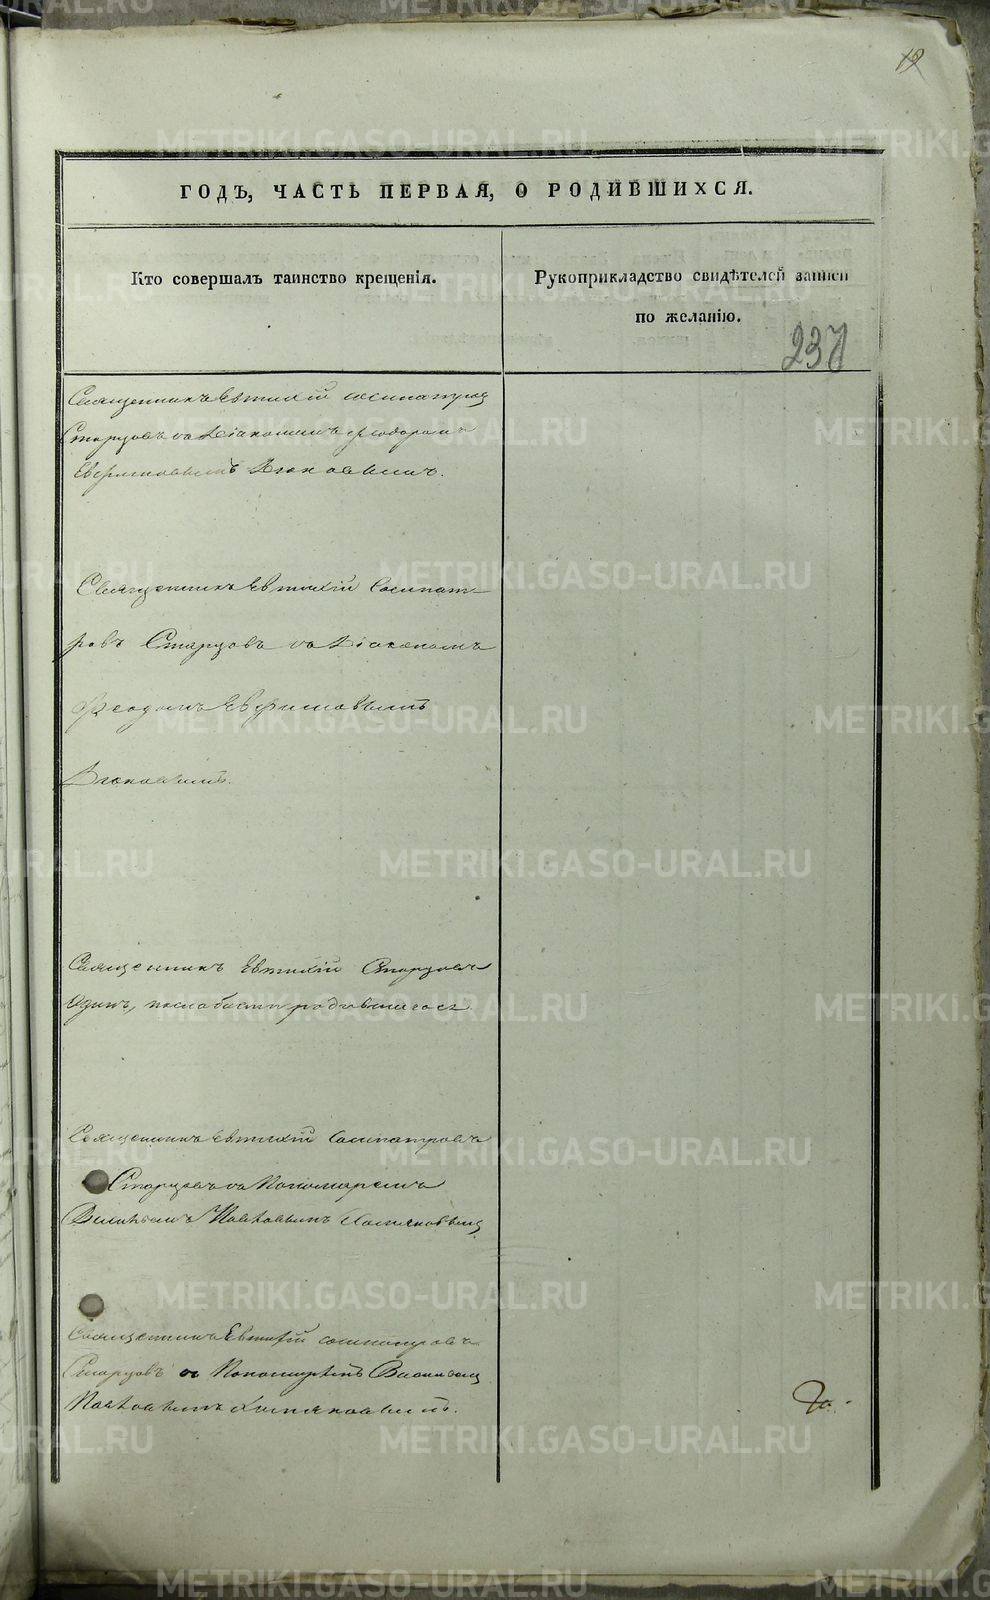 19
ГОДЪ, ЧАСТЬ ПЕРВАЯ, О РОДИВШИХСЯ.
Кто совершалъ таинство крещенія.
Рукоприкладство свидѣтелей записи
по желанію.
237
Священникъ Евтихій Сосипатров
Старцовъ съ Діакономъ Ѳеодоромъ
Евфимовымъ
Священникъ Евтихій Сосипат-
ровъ Старцовъ съ Діакономъ
Евфимовымъ
Священникъ Евтихій Старцовъ
Одинъ, по слабости родившагося.
Священникъ Евтихій Сосипатровъ
Старцовъ съ Пономаремъ
Священникъ Евтихій Сосипатровъ
Старцовъ съ Пономаремъ
METRIKI.GASO-URAL.RU